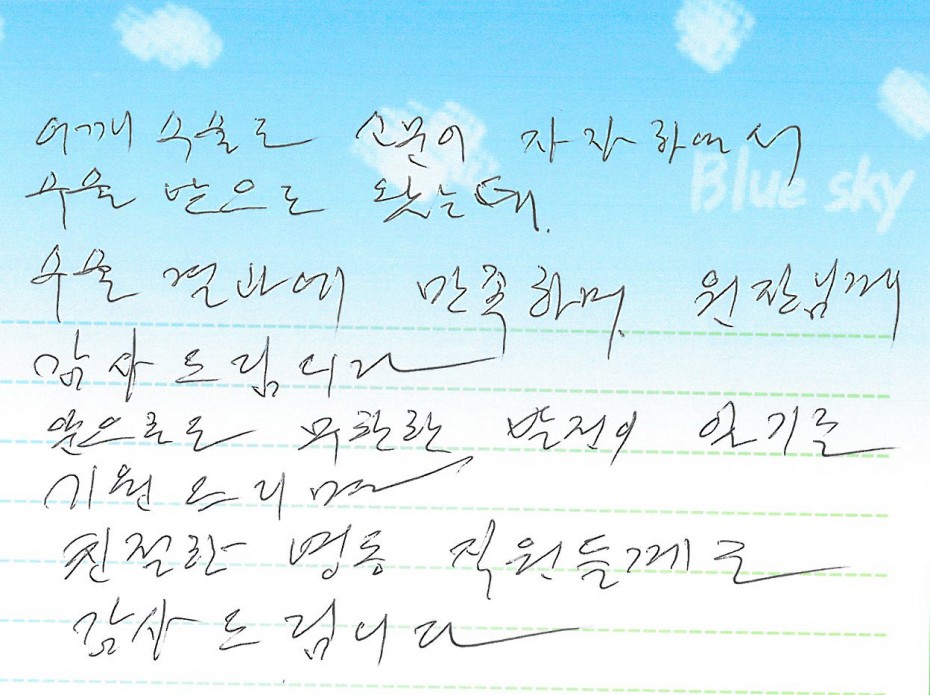 어깨 수술로 소문이 자자하여서
Blue sky
수술 받으로 왔는데.
수술 결과에 만족하며. 원장님께
감사드립니다
앞으로도 무한한 발전이 있기를
기원드리며
친절한 명동 직원들께도
감사드립니다